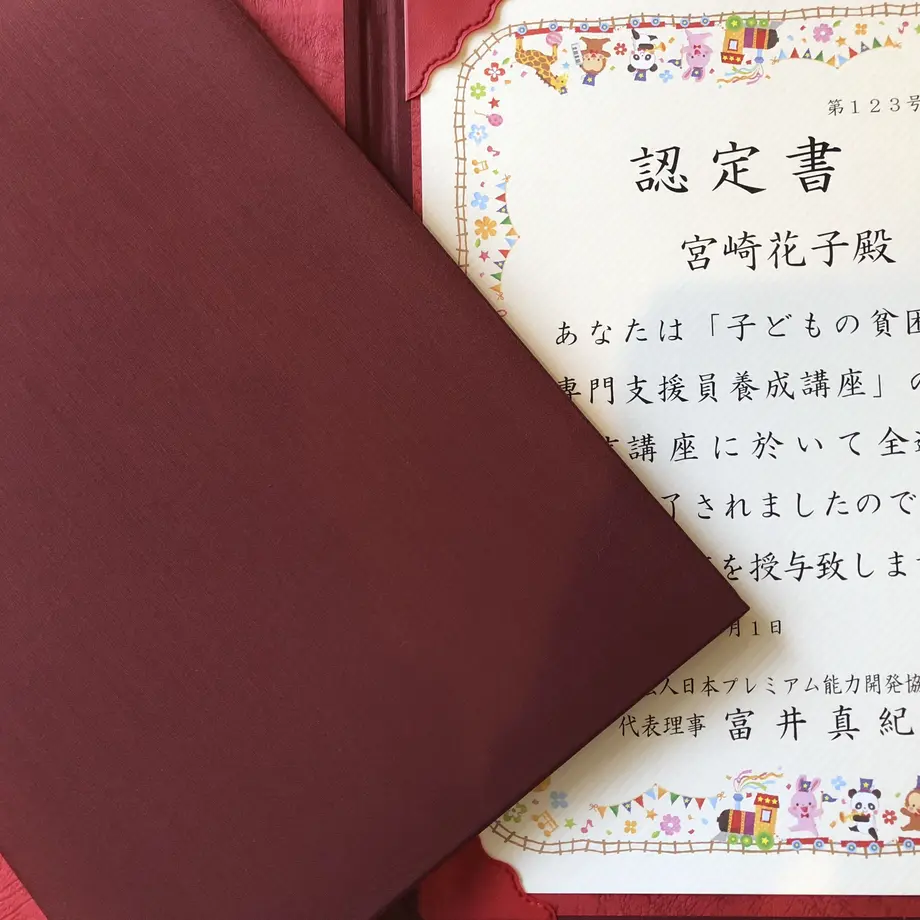 第１２３号
認定書
宮崎花子殿
あなたは「子どもの貧困
専門支援員養成講座」の
講座に於いて全
了されましたので
を授与致します
月１日
人日本プレミアム能力開発協
代表理事 富井真紀